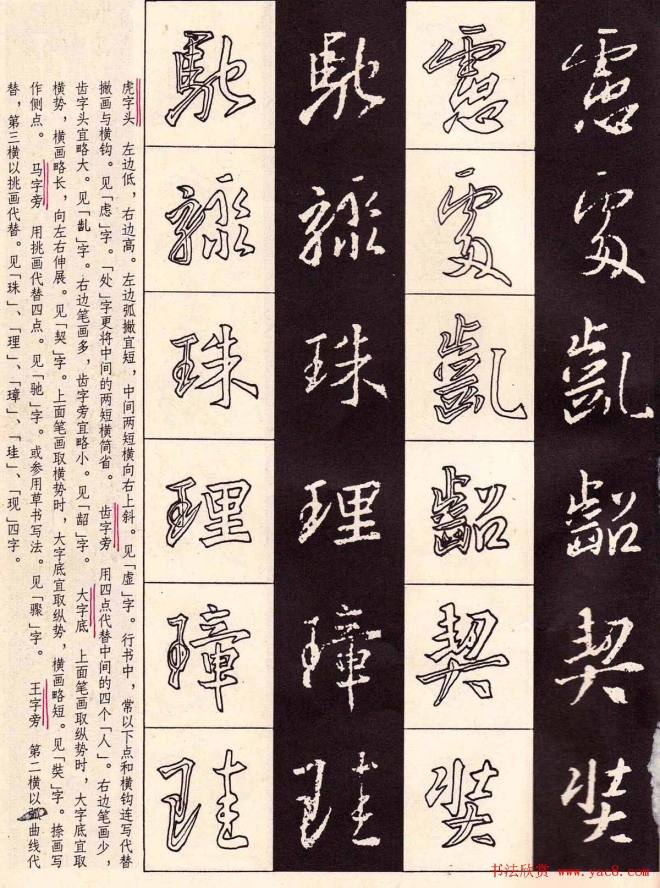 慮處齓齠契奘
慮處齓齠契奘
馳驟珠理璋珪
馳驟珠理璋珪
虎字头 左边低，右边高。左边弧撇宜短，中间两短横向右上斜。见「虚」字。行书中，常以下点和横钩连写代替
撇画与横钩。见「虑」字。「处」字更将中间的两短横简省。 齿字旁 用四点代替中间的四个「人」。右边笔画少，
齿字头宜略大。见「齓」字。右边笔画多，齿字旁宜略小。见「龆」字。 大字底 上面笔画取纵势时，大字底宜取
横势，横画略长，向左右伸展。见「契」字。上面笔画取横势时，大字底宜取纵势，横画略短。见「奘」字。捺画写
作侧点。 马字旁 用挑画代替四点。见「驰」字。或参用草书写法。见「骤」字。 王字旁 第二横以弧曲线代
替，第三横以挑画代替。见「珠」、「理」、「璋」、「珪」、「现」四字。
书法欣赏 www.yac8.com